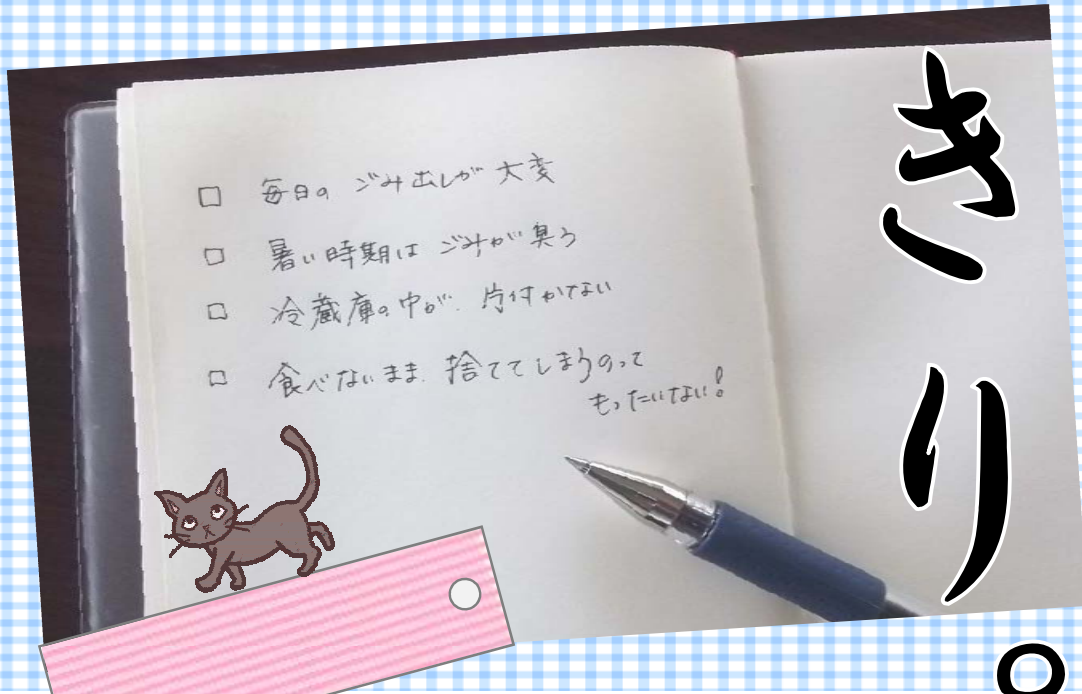 □ 毎日の ごみ出しが 大変
□ 暑い時期は ごみが臭う
□ 冷蔵庫の中が、片付かない
□ 食べないまま、捨ててしまうのって
もったいない!
きり。